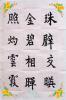 珠璧交映
金碧相暉
照灼雲霞